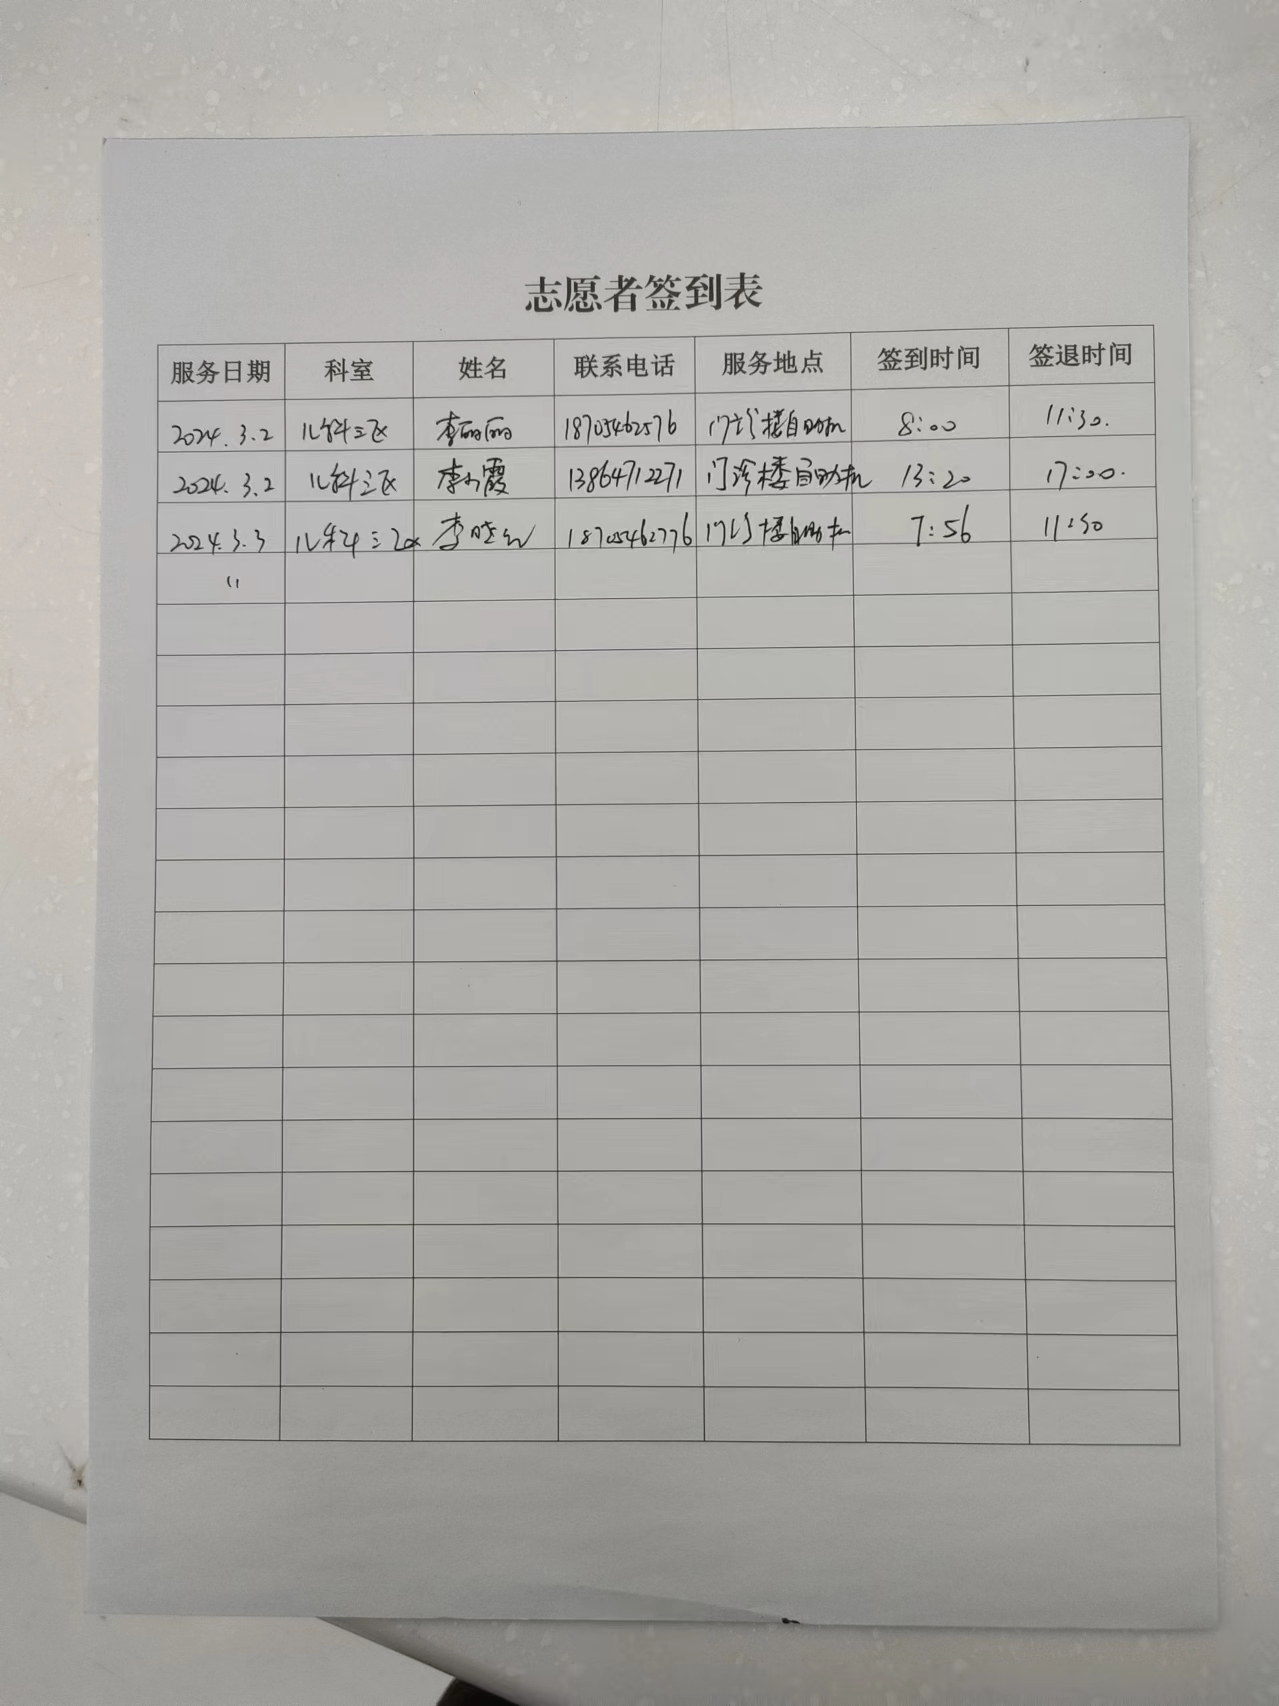 志愿者签到表
服务日期 科室 姓名 联系电话 服务地点 签到时间 签退时间
2024.3.2 儿科三区 李丽丽 18705462576 门诊楼自助机 8:00 11:30.
2024.3.2 儿科三区 李小霞 13864712271 门诊楼自助机 13:20 17:00.
2024.3.3 儿科三区 李晓 18705462776 门诊楼自助机 7:56 11:30
〃